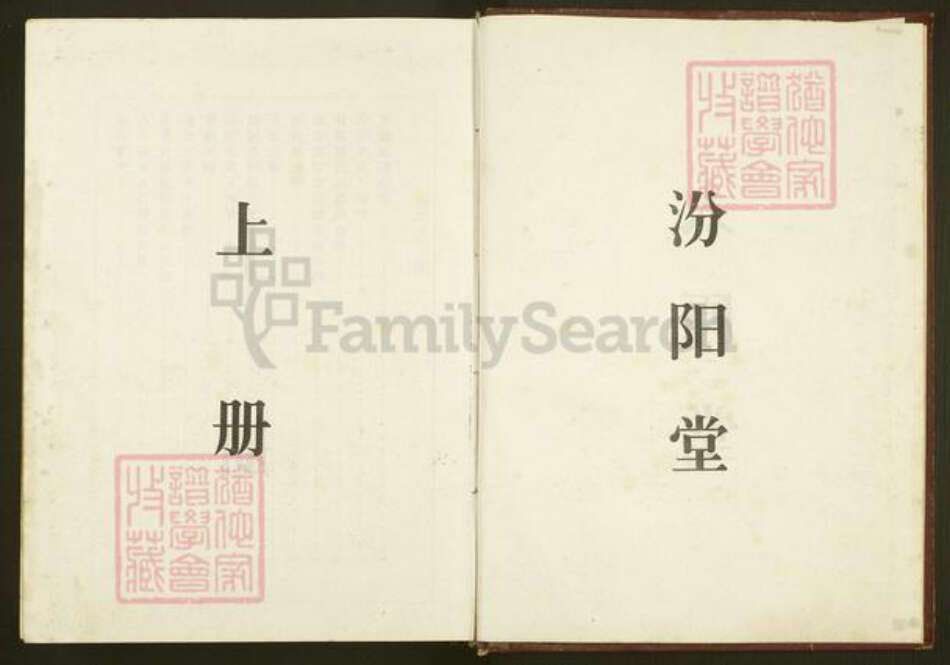 汾阳堂
上册
猶他家
譜學會
收藏
猶他家
譜學會
收藏
FamilySearch